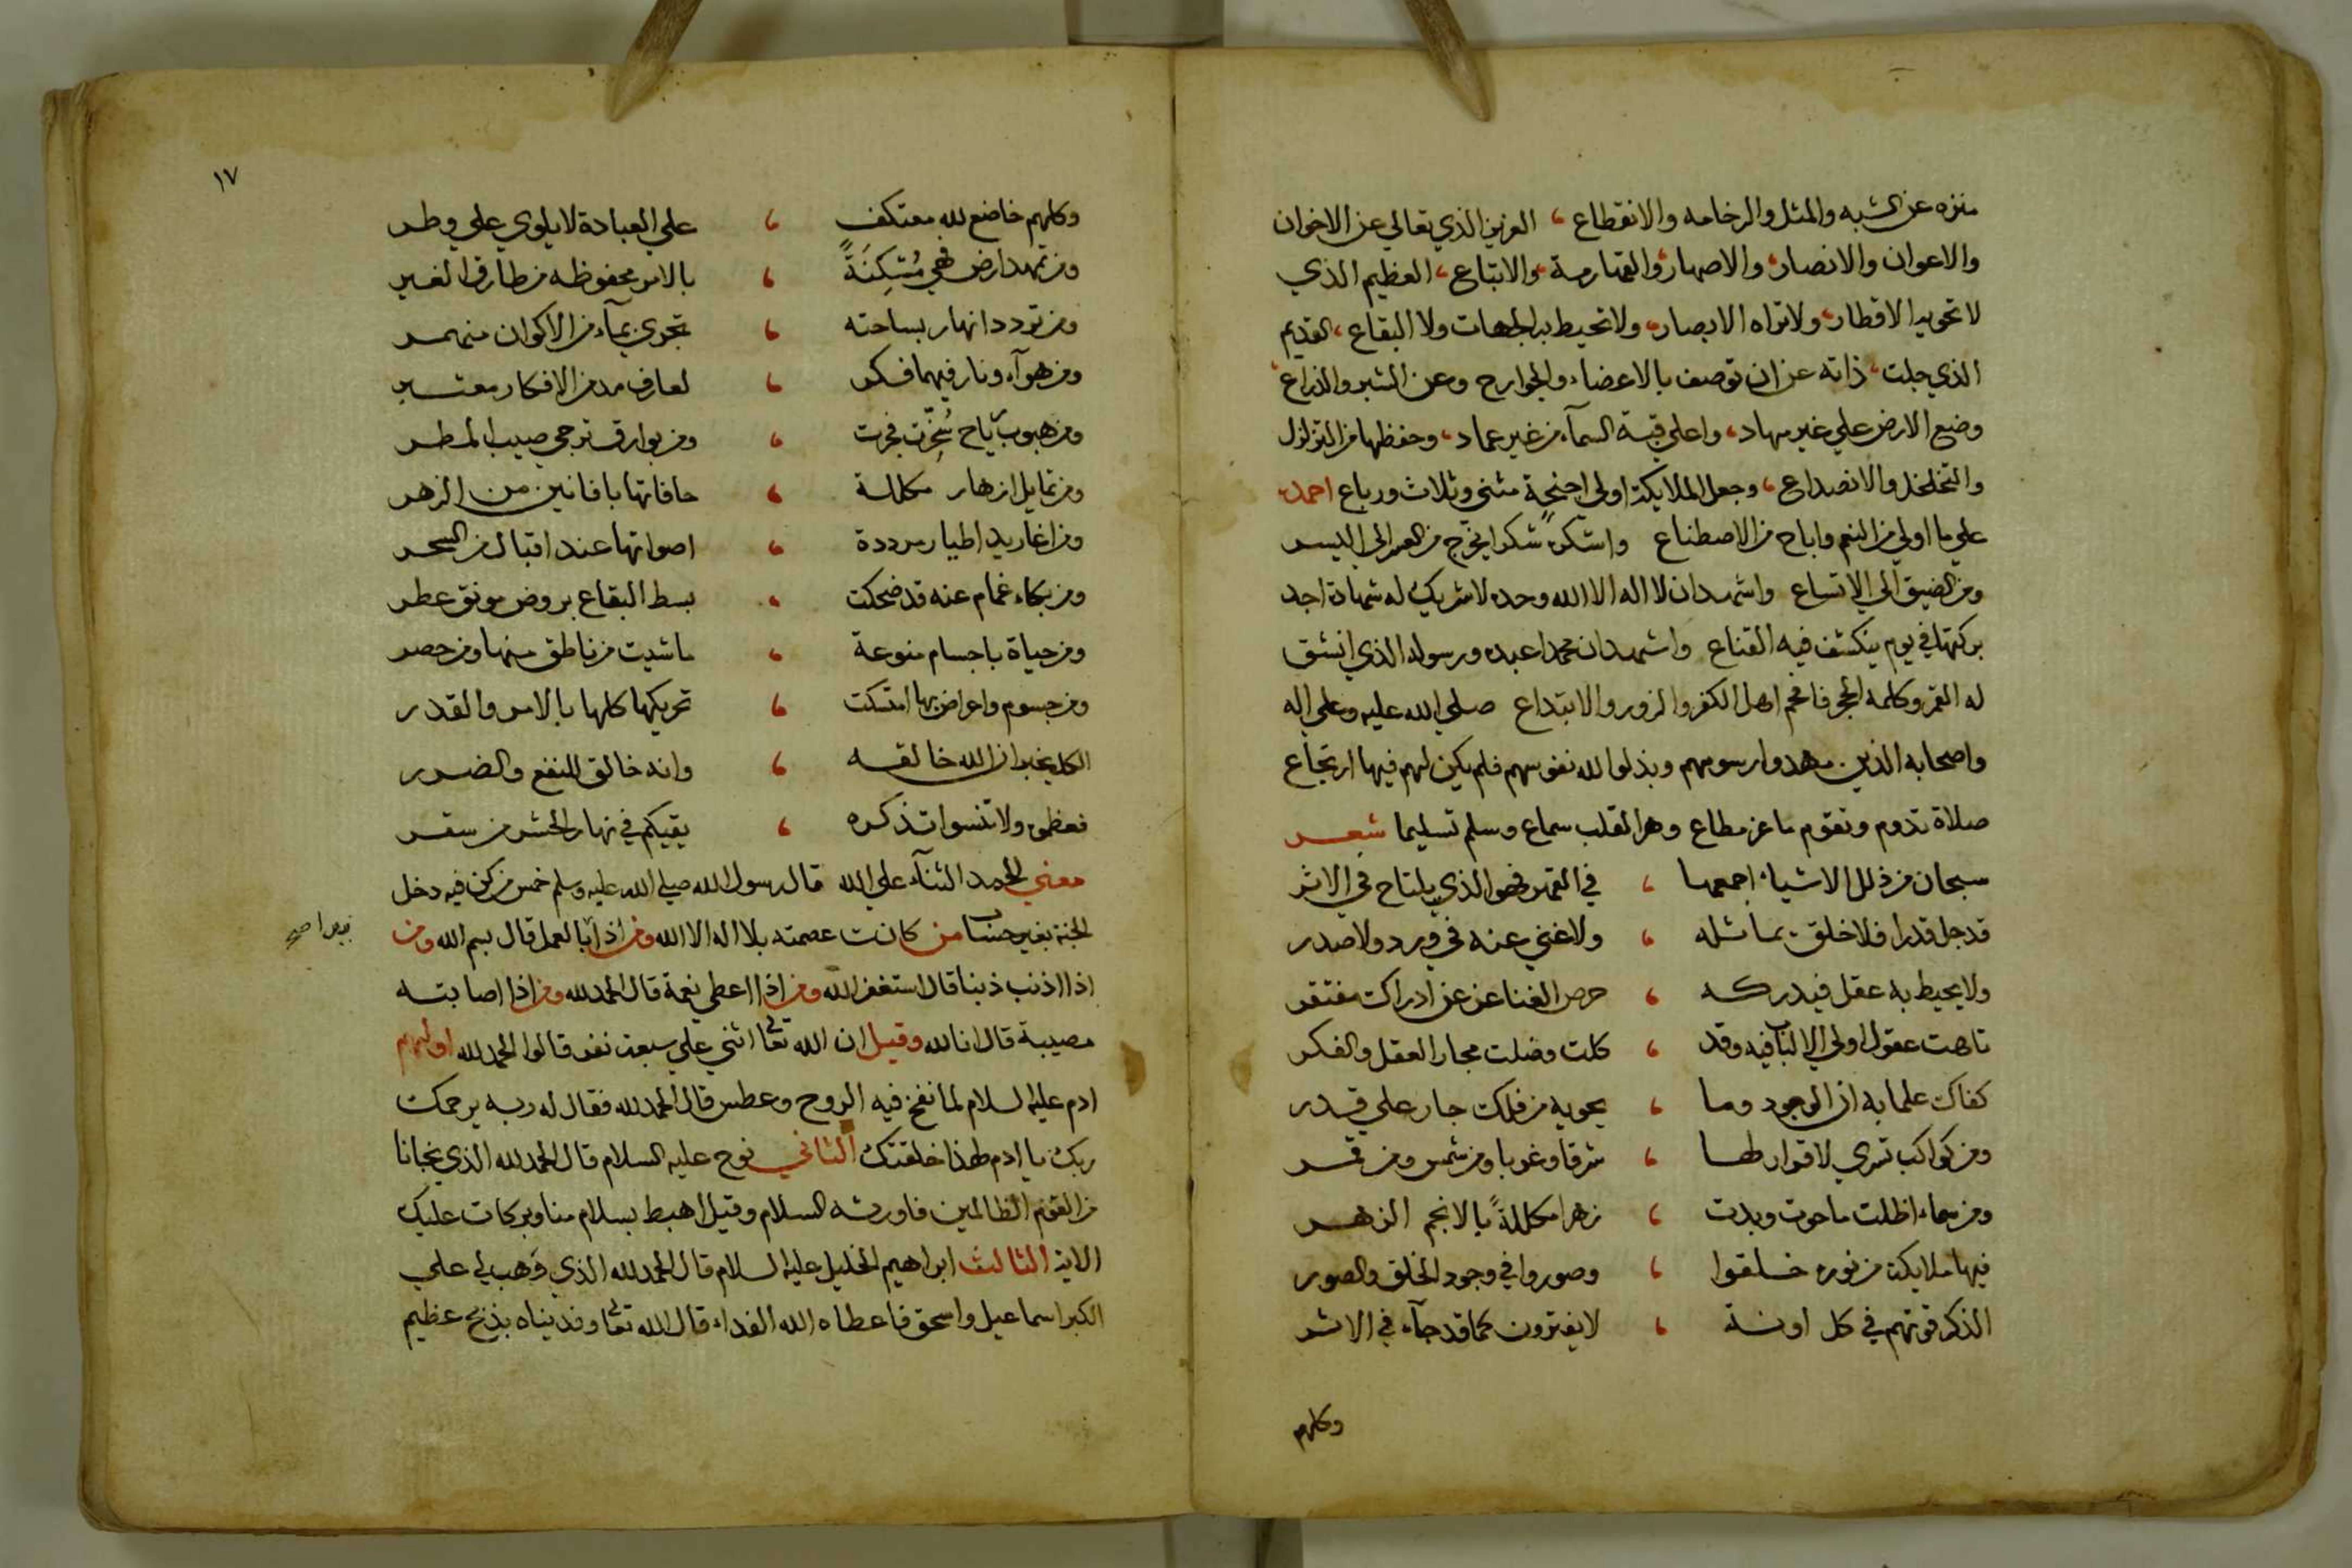 منزه عن الشبه والمثل والرخامه والانقطاع ، العزيز الذي تعالي عن الاخوان
والاعوان والانصار، والاصهار، والقهارمة، والاتباع، العظيم الذي
لا تحويه الاقطار، ولا تراه الابصار، ولا تحيط به الجهات ولا البقاع، القديم
الذي جلت، ذاته عن ان توصف بالاعضاء والجوارح وعن الشبر والذراع،
وضع الارض علي غير مهاد، واعلي قبة السمآء من غير عماد، وحفظها من التزلزل
والتخلخل والانصداع، وجعل الملايكة اولي اجنحة مثني وثلاث ورباع احمده
علي ما اولي من النعم واباح من الاصطناع واشكره شكرا يخرج من العسر الي اليسر
ومن الضيق الي الاتساع واشهد ان لا اله الا الله وحده لا شريك له شهادة اجد
بركتها في يوم ينكشف فيه القناع واشهد ان محمدا عبده ورسوله الذي انشق
له القمر وكلمه الحجر فافحم اهل الكفر والزور والابتداع صلي الله عليه وعلي اله
واصحابه الذين مهدوا رسومهم وبذلوا لله نفوسهم فلم يكن لهم فيها ارتجاع
صلاة تدوم وتقوم ما عز مطاع وهز القلب سماع وسلم تسليما شعر
سبحان من ذلل الاشياء اجمعها ، في القهر فهو الذي يلتاح في الاثر
قد جل قدرا فلا خلق يماثله ، ولا غني عنه في ورد ولا صدر
ولا يحيط به عقل فيدركه ، حرص الغنا عز عن ادراك مفتقر
تاهت عقول اولي الالباب فيه وقد ، كلت وضلت مجار العقل والفكر
كفاك علما به ان الوجود وما ، يحويه من فلك جار علي قدر
ومن كواكب تسري لا قرار لها ، شرقا وغربا ومن شمس ومن قمر
ومن سماء اظلت ما حوت وبدت ، زهرا مكللةً بالانجم الزهر
فيها ملايكة من نوره خلقوا ، وصوروا في وجود الخلق والصور
الذكر قوتهم في كل اونة ، لا يفترون كما قد جآء في الاثر
وكلهم
١٧
وكلهم خاضع لله معتكف ، علي العبادة لا يلوي علي وطر
ومن تمهد ارض فهي مُتّكِنَةً ، بالامر محفوظه من طارق الغير
ومن تردد انهار بساحته ، تجري بمآء من الاكوان منهمر
ومن هوآء ونار فيهما فكر ، لعارف مد من الافكار معتبر
ومن هبوب رياح سُخّرت فجرت ، ومن بوارق ترجي صيب المطر
ومن تمايل ازهار مكللة ، حافاتها بافانين من الزهر
ومن اغاريد اطيار مرددة ، اصواتها عند اقبال من السحر
ومن بكاء غمام عنه قد ضحكت ، بسط البقاع بروض مونق عطر
ومن حياة باجسام منوعة ، ما شيت من ناطق منها ومن حصر
ومن جسوم واعراض بها امتسكت ، تحريكها كلها بالامر والقدر
الكل يخبر ان الله خالقه ، وانه خالق للنفع والضرر
فعظموه ولا تنسوا تذكره ، يقيكم في نهار الحشر من سقر
معني الحمد الثنآء علي الله قال رسول الله صلي الله عليه وسلم خمس من كن فيه دخل
الجنة بغير حساب من كانت عصمته بلا اله الا الله ومن اذا بالعمل قال بسم الله ومن
اذا اذنب ذنبا قال استغفر الله ومن اذا اعطي نعمة قال الحمد لله ومن اذا اصابته
مصيبة قال انا لله وقيل ان الله تعا اثني علي سبعة نفر قالوا الحمد لله اولهم
ادم عليه السلام لما نفخ فيه الروح وعطس قال الحمد لله فقال له ربه يرحمك
ربك يا ادم لهذا خلقتك الثاني نوح عليه السلام قال الحمد لله الذي نجانا
من القوم الظالمين فاورثه السلام وقيل اهبط بسلام منا وبركات عليك
الاية الثالث ابراهيم الخليل عليه السلام قال الحمد لله الذي وهب لي علي
الكبر اسماعيل واسحق فاعطاه الله الفداء قال الله تعا وفديناه بذبح عظيم